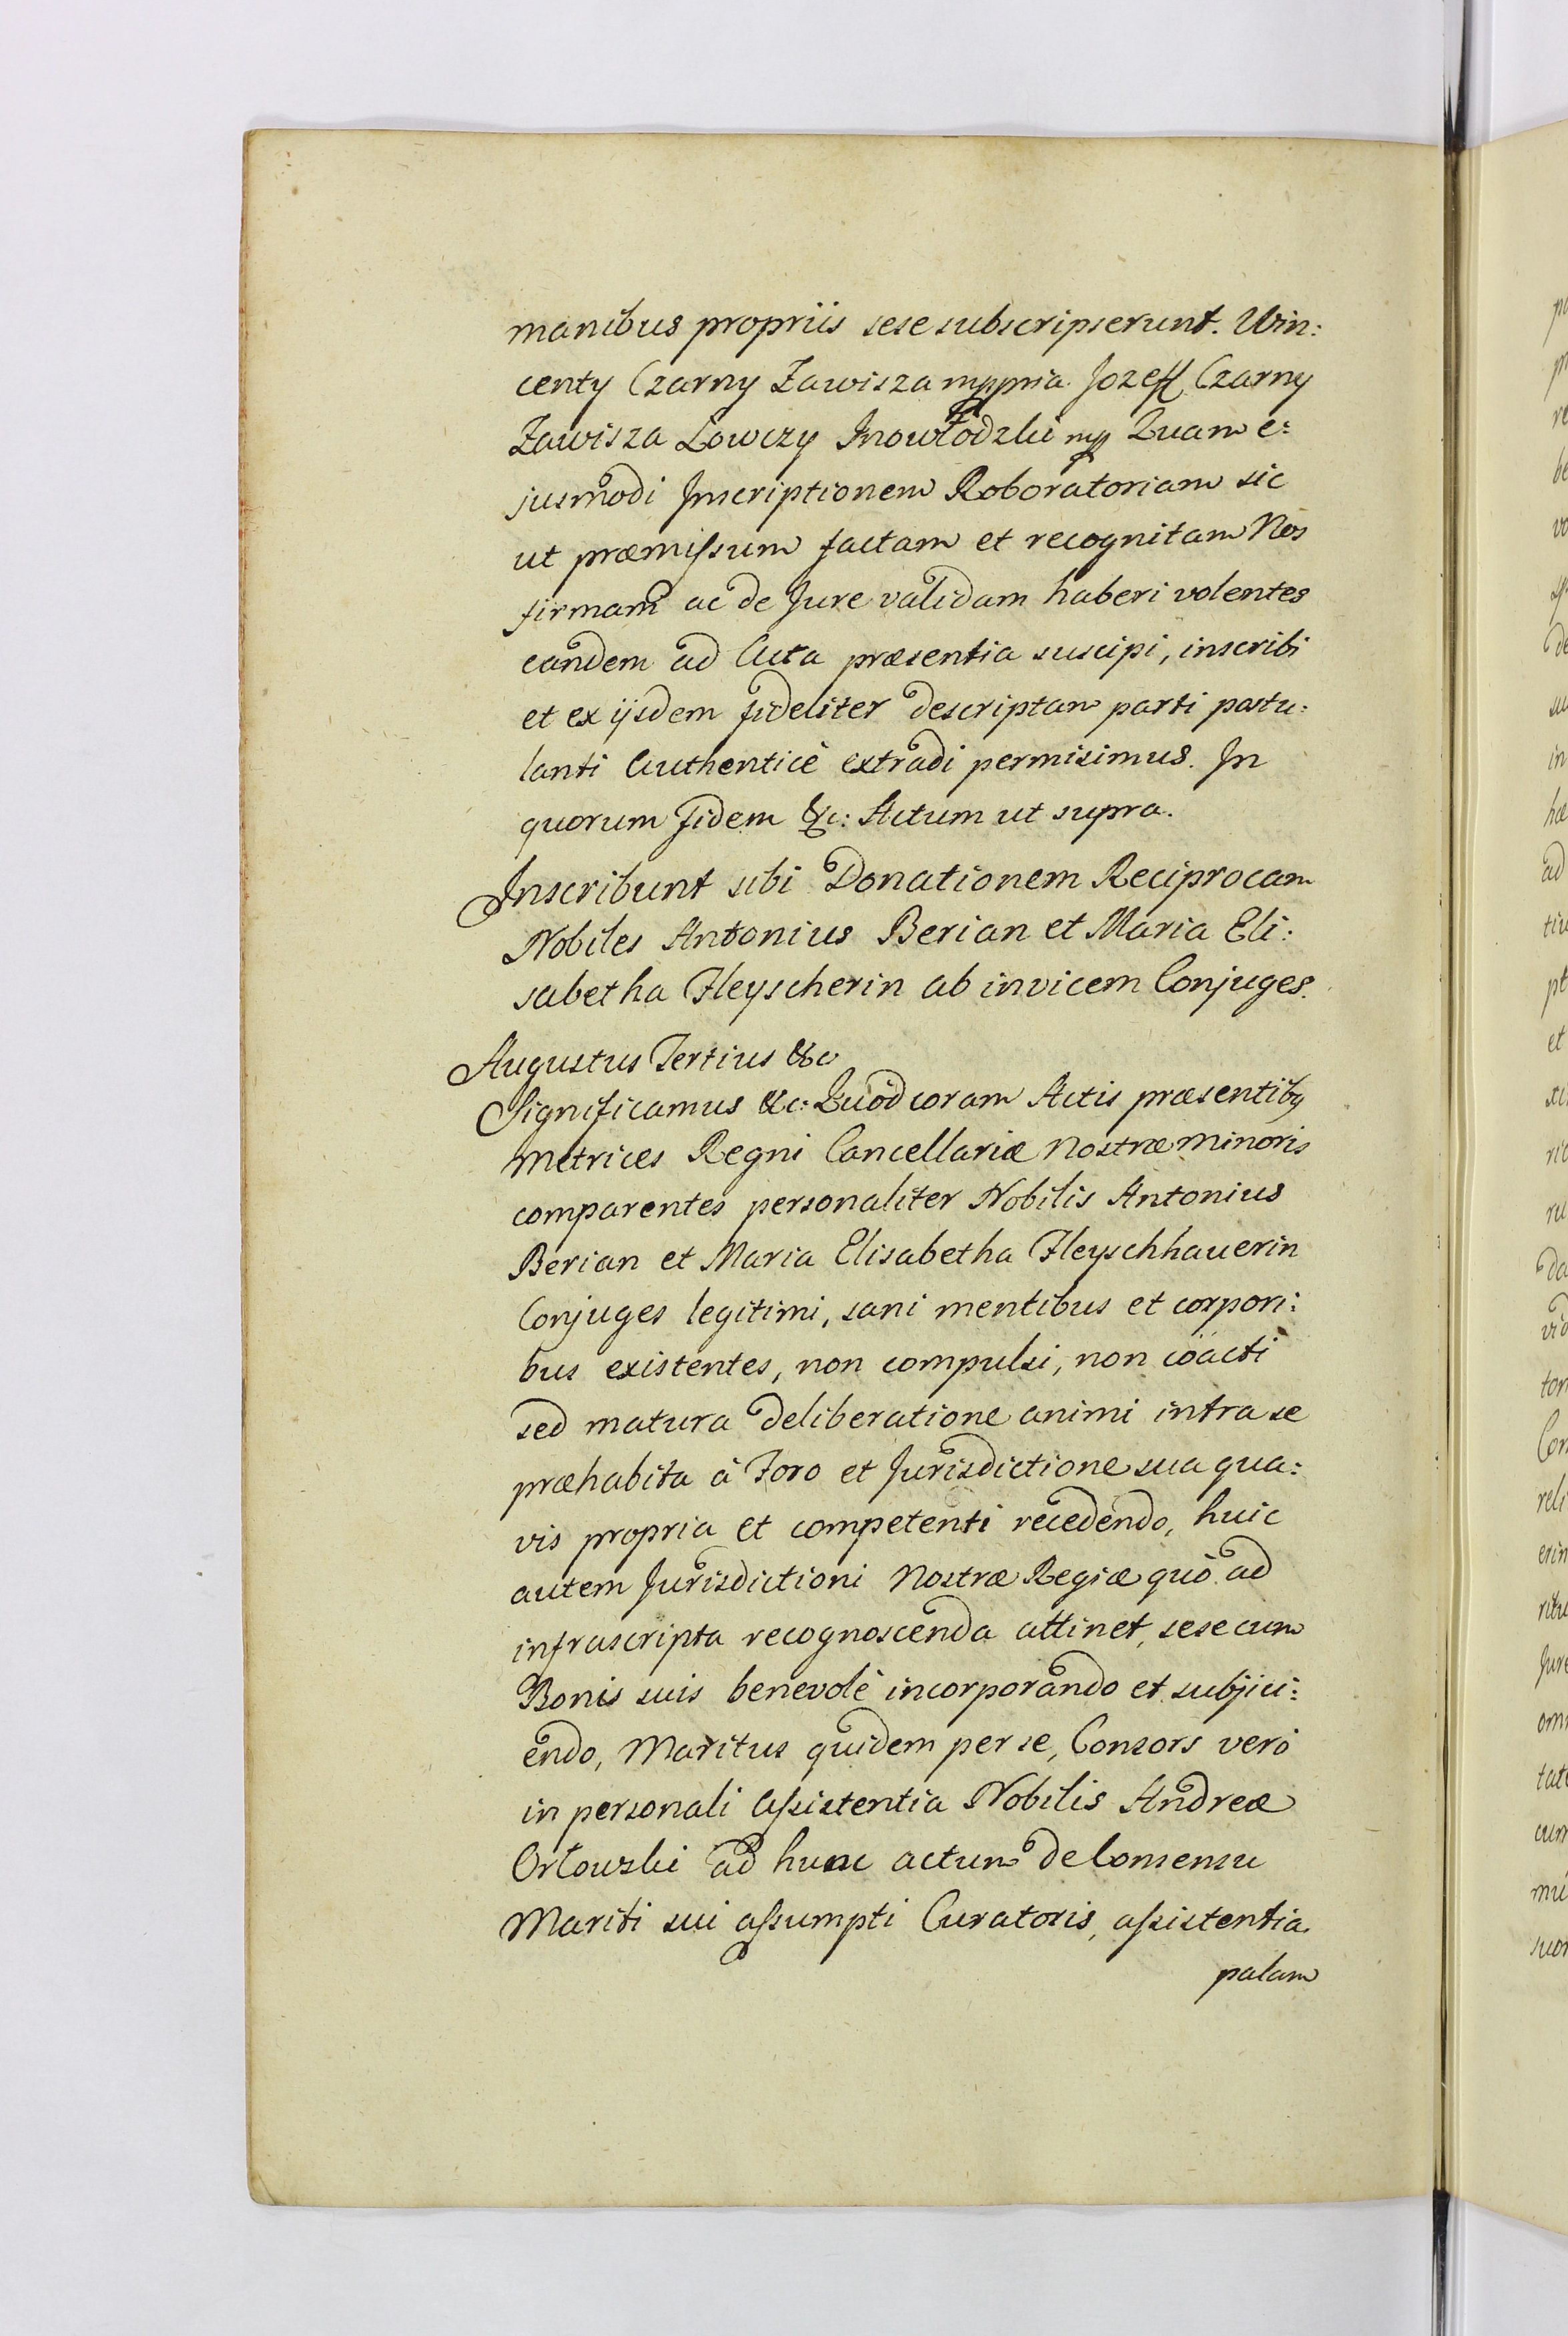 manibus propriis sese subscripserunt. Win:
centy Czarny Zawisza mppria. Jozeff Czarny
Zawisza Łowczy Inowłodzki mpp Quam e:
jusmodi Inscriptionem Roboratoriam sic
ut præmissum factam et recognitam Nos
firmam ac de Jure validam haberi volentes
eandem ad Acta præsentia suscipi, inscribi
et ex ijsdem fideliter descriptam parti postu:
lanti Authenticè extradi permisimus. In
quorum fidem &c: Actum ut supra.
Inscribunt sibi Donationem Reciprocam
Nobiles Antonius Berian et Maria Eli:
sabetha Fleyscherin ab invicem Conjuges.
Augustus Tertius &c
Significamus &c: Quod coram Actis præsentibg
Metrices Regni Cancellariæ Nostræ Minoris
comparentes personaliter Nobilis Antonius
Berian et Maria Elisabetha Fleyschhauerin
Conjuges legitimi, sani mentibus et corpori:
bus existentes, non compulsi, non coacti
sed matura deliberatione animi intra se
præhabita à Foro et Jurisdictione sua qua:
vis propria et competenti recedendo, huic
autem Jurisdictioni Nostræ Regiæ quò ad
infrascripta recognoscenda attinet, sese cum
Bonis suis benevolè incorporando et subjici:
endo, Maritus quidem per se, Consors verò
in personali Assistentia Nobilis Andreæ
Orłowski ad hunc actum de Consensu
Mariti sui assumpti Curatoris, assistentia
palam